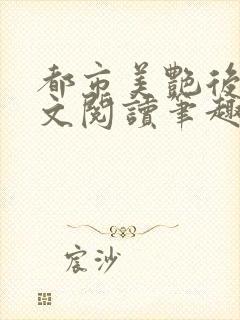 都市美艷後
文閱讀筆趣
宸沙